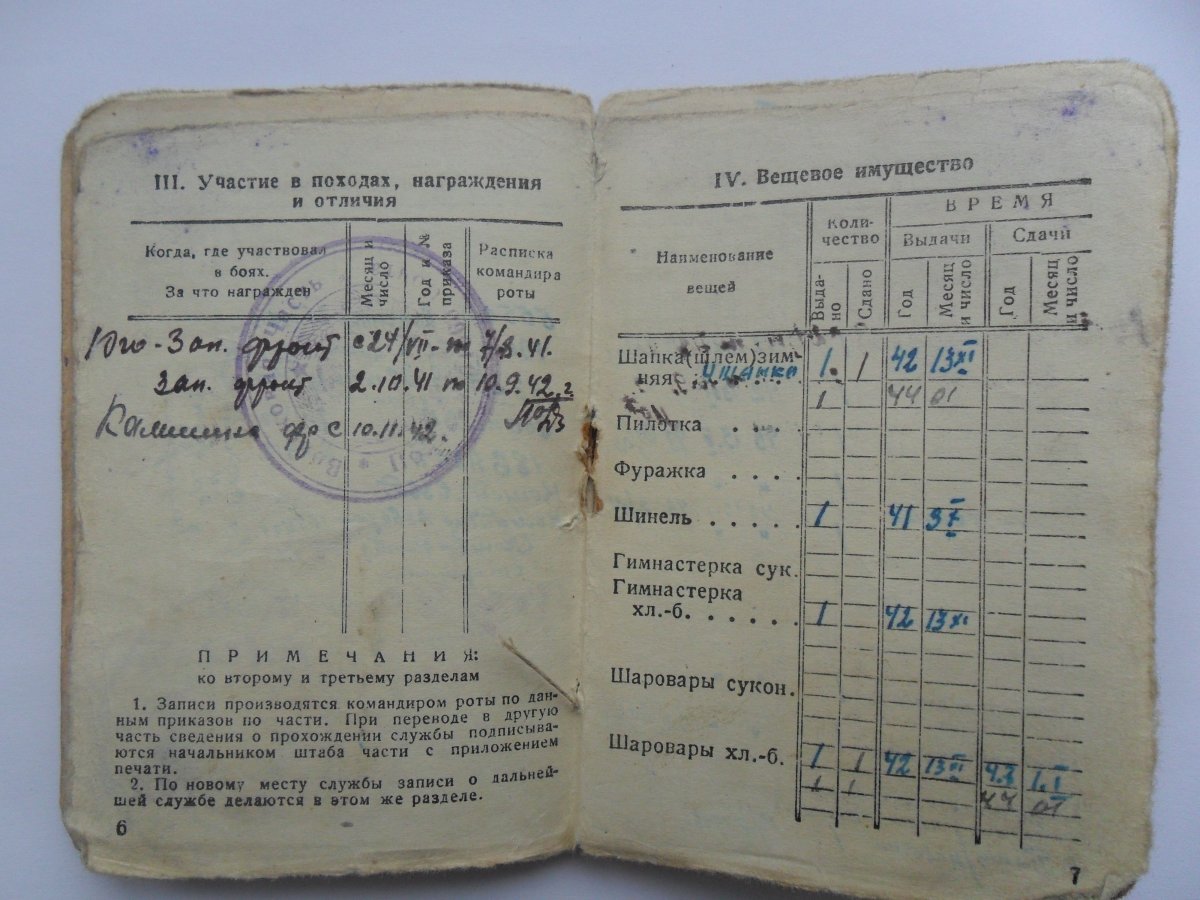 III. Участие в походах, награждения
и отличия
Когда, где участвовал
в боях.
За что награжден
Месяц и
число
Год и №
приказа
Расписка
командира
роты
Юго-Зап. фронт с 24/VII- по 7/8.41.
Зап. фронт 2.10.41 по 10.9.42 г.
фр с 10.11.42.
ПРИМЕЧАНИЯ:
ко второму и третьему разделам
1. Записи производятся командиром роты по дан-
ным приказов по части. При переводе в другую
часть сведения о прохождении службы подписыва-
ются начальником штаба части с приложением
печати.
2. По новому месту службы записи о дальней-
шей службе делаются в этом же разделе.
6
IV. Вещевое имущество
Наименование
вещей
Коли-
чество
ВРЕМЯ
Выдачи
Сдачи
Выда-
но
Сдано
Год
Месяц
и число
Год
Месяц
и число
Шапка(шлем)зим- 1. 1 42 13 XI
няя ушанка
1 44 01
Пилотка ....
Фуражка ....
Шинель ..... 1 41
Гимнастерка сук.
Гимнастерка
хл.-б. ...... 1 42 13 XI
Шаровары сукон.
Шаровары хл.-б. 1 1 42 13 XI 43 1.I
1 1 44 01
7